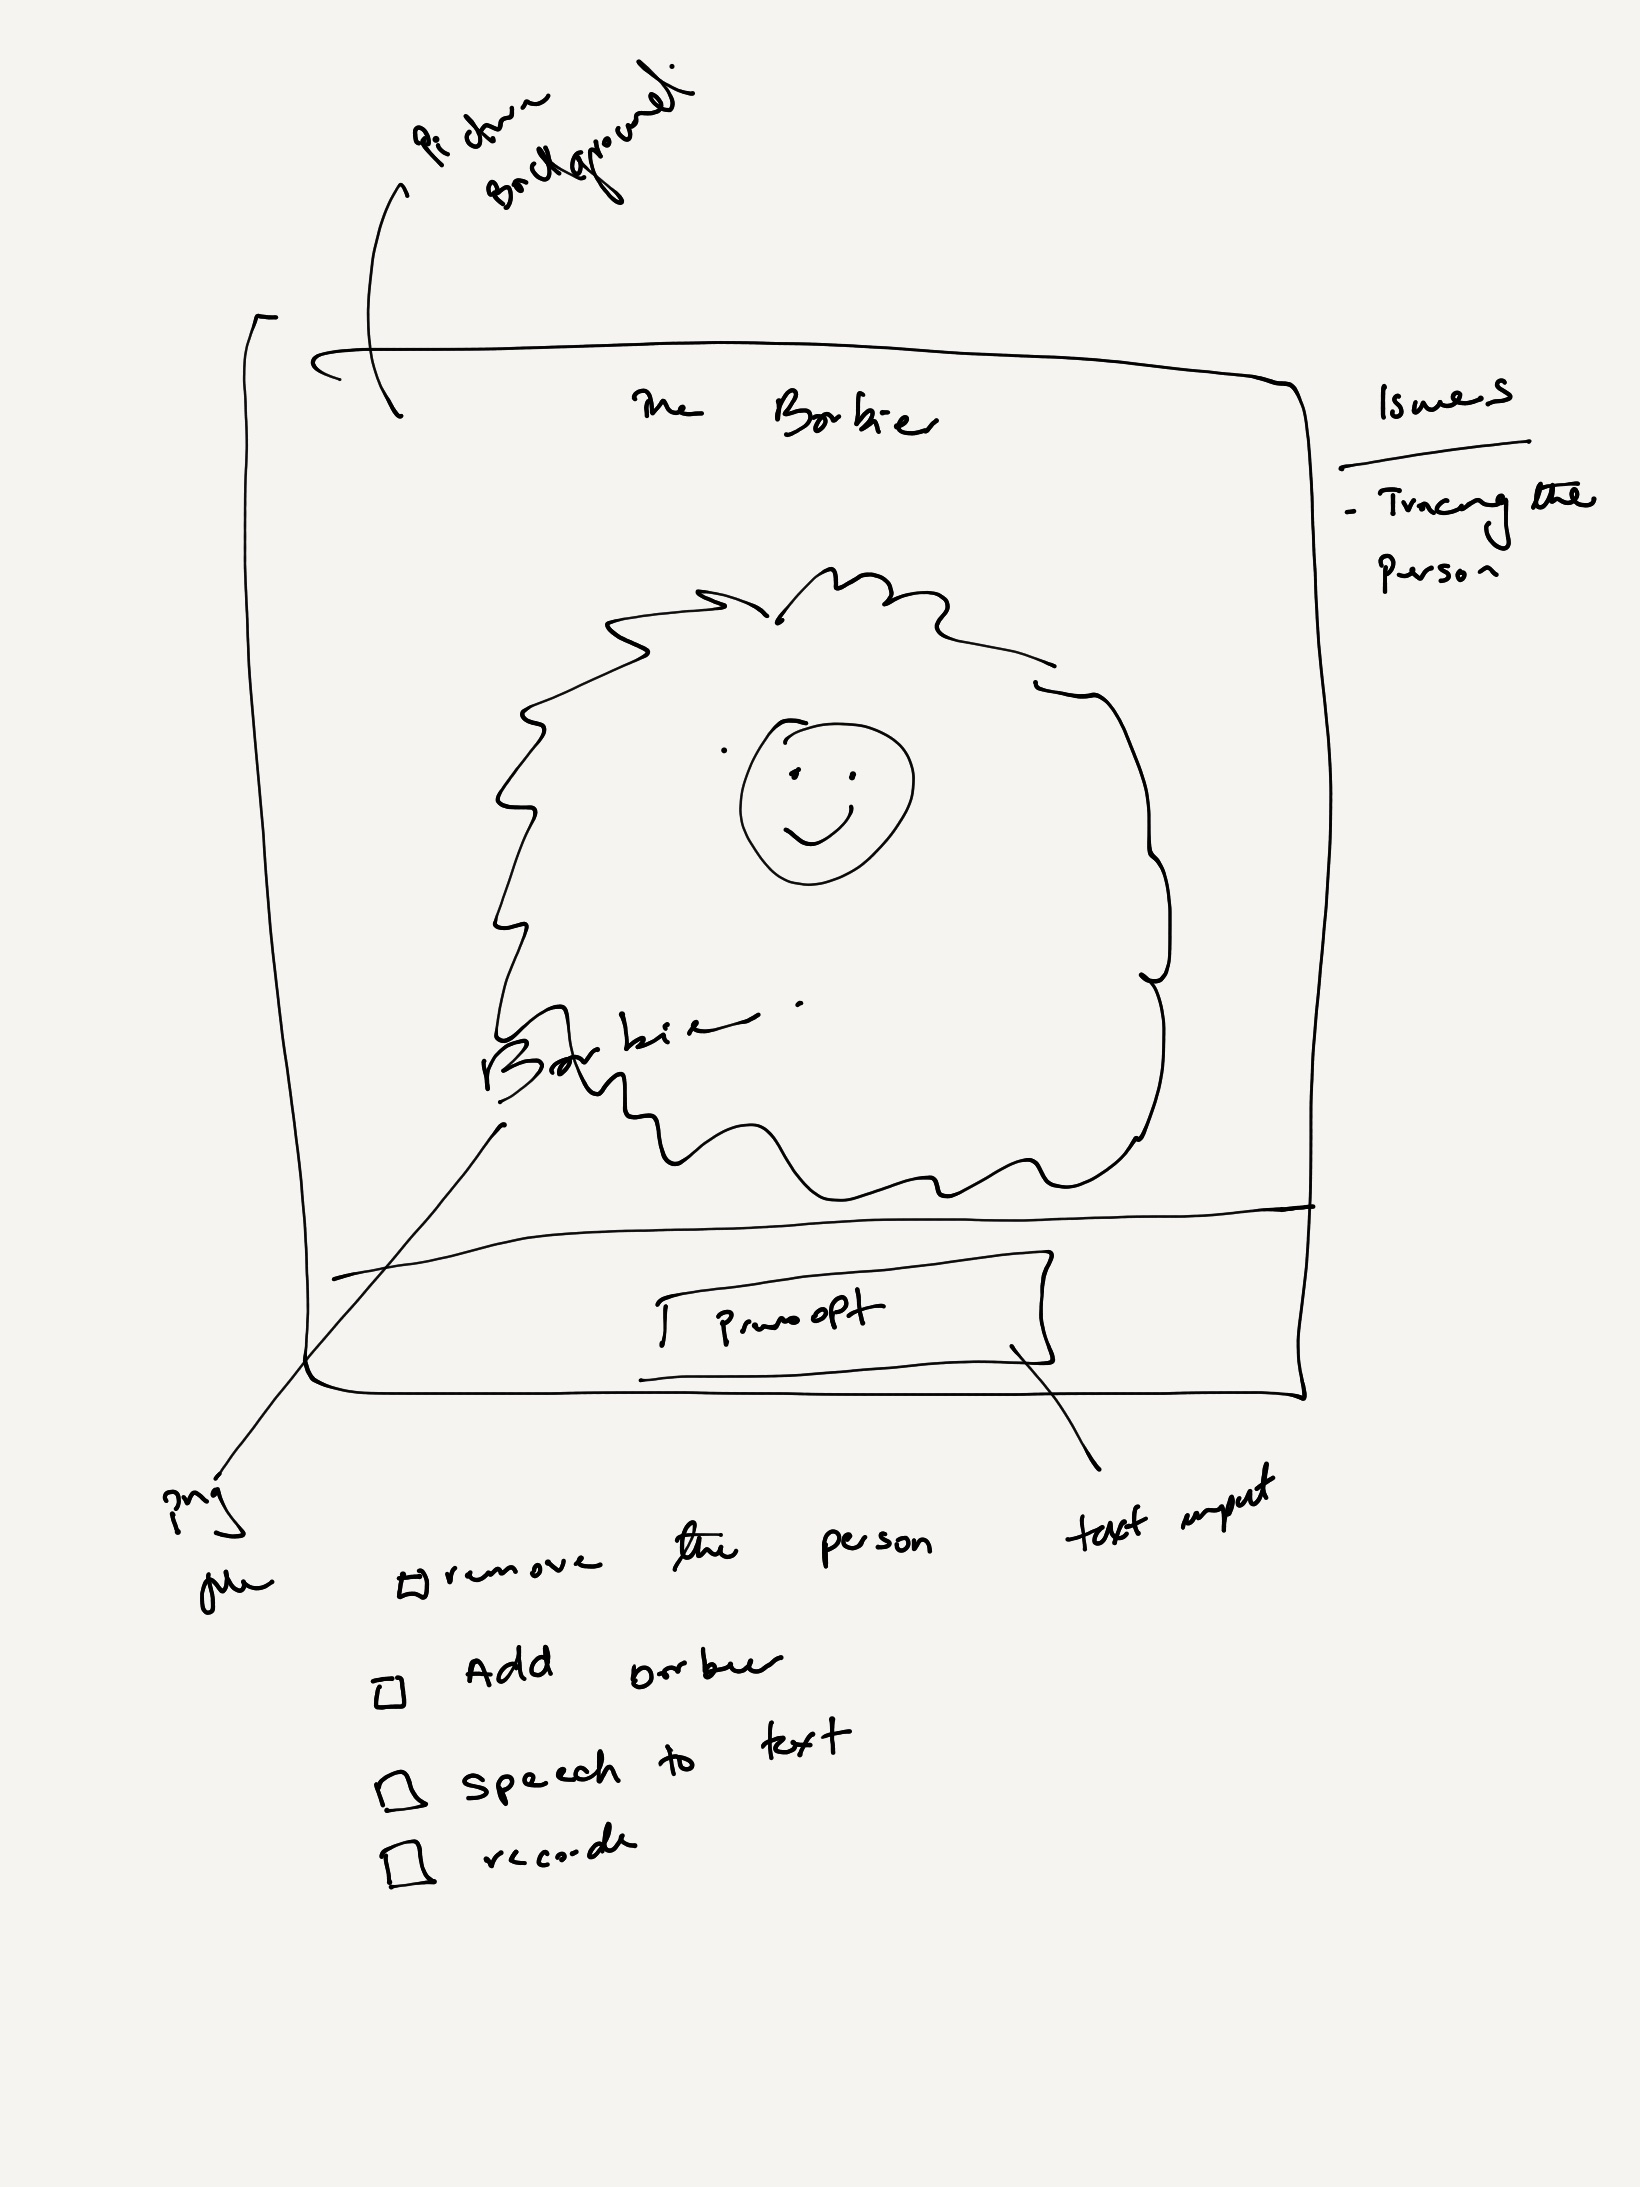 Picture
Background.
The Barbie
Issues
- Tracing the
Person
Barbie
Prompt
png
file
text input
remove the person
Add barbie
speech to text
recorde